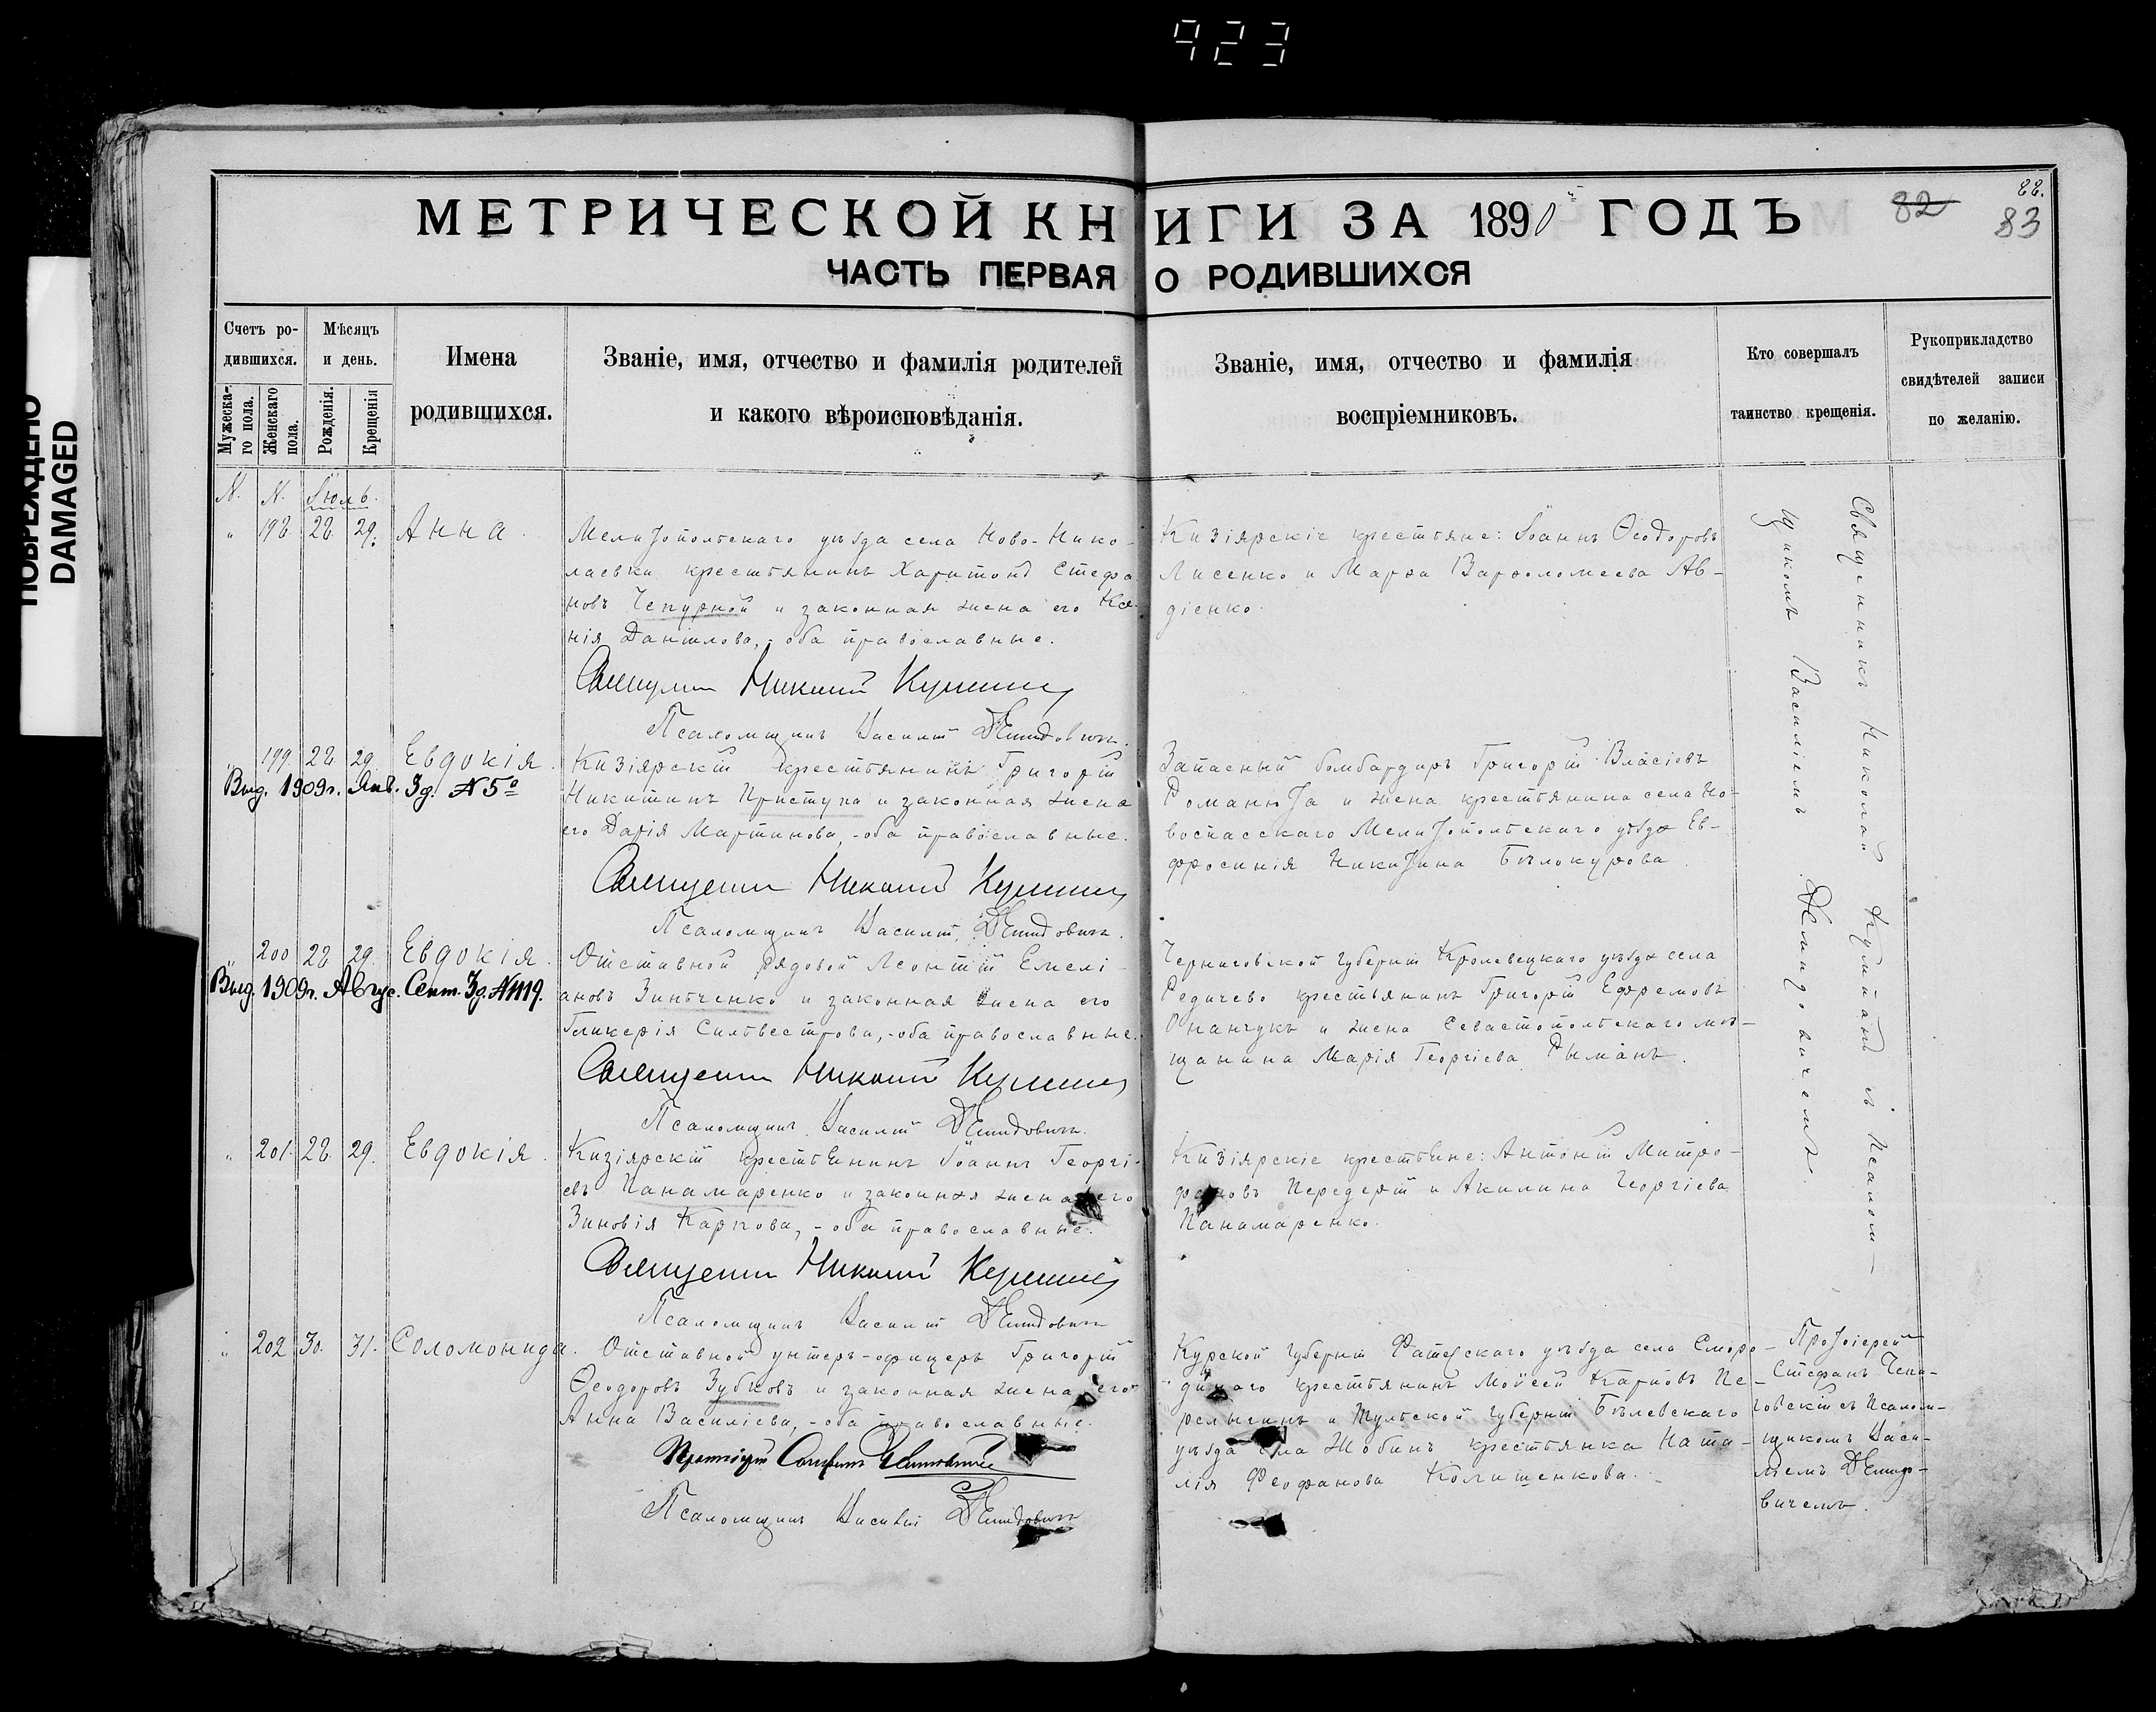 923
ПОВРЕЖДЕНО
DAMAGED
88.
82
83
МЕТРИЧЕСКОЙ КНИГИ ЗА 1890 ГОДЪ
ЧАСТЬ ПЕРВАЯ О РОДИВШИХСЯ
Счетъ ро-
дившихся.
Мужеска-
го пола.
Женскаго
пола.
Мѣсяцъ
и день.
Рожденія.
Крещенія
Имена
родившихся.
Званіе, имя, отчество и фамилія родителей
и какого вѣроисповѣданія.
Званіе, имя, отчество и фамилія
воспріемниковъ.
Кто совершалъ
таинство крещенія.
Рукоприкладство
свидѣтелей записи
по желанію.
N. N. Іюль.
" 198 28 29. Анна.
Мелитопольскаго уѣзда села Ново-Нико-
лаевки крестьянинъ Харитонъ Стефа-
новъ Чепурной и законная жена его Ксе-
нія Даніилова, - оба православные.
Священникъ Николай
Псаломщикъ Василій Демидовичъ.
Кизіярскіе крестьяне: Іоаннъ Ѳеодоровъ
Лисенко и Марѳа Варѳоломеева Ав-
діенко.
Священникъ Николай съ Псалом-
щикомъ Василіемъ Демидовичемъ.
" 199 28 29 Евдокія.
Выд. 1909 г. Янв. 3 д. № 5
Кизіярскій крестьянинъ Григорій
Никитинъ Приступа и законная жена
его Дарія Мартинова, - оба православные.
Священникъ Николай
Псаломщикъ Василій Демидовичъ.
Запасный бомбардиръ Григорій Власіевъ
Романюта и жена крестьянина села Но-
воспасскаго Мелитопольскаго уѣзда Ев-
фросинія Никитина Бѣлокурова
" 200 28 29. Евдокія.
Выд. 1909 г. Сент. 3 д. №1119.
Отставной рядовой Леонтій Емелі-
ановъ Зиньченко и законная жена его
Гликерія Сильвестрова, - оба православные.
Священникъ Николай
Псаломщикъ Василій Демидовичъ.
Черниговской губерніи Кролевецкаго уѣзда села
Редичево крестьянинъ Григорій Ефремовъ
Онанчукъ и жена Севастопольскаго мѣ-
щанина Марія Георгіева Рыманъ.
" 201. 28. 29. Евдокія.
Кизіярскій крестьянинъ Іоаннъ Георгі-
евъ Панамаренко и законная жена его
Зиновія Карпова, - оба православные.
Священникъ Николай
Псаломщикъ Василій Демидовичъ
Кизіярскіе крестьяне: Антоній Митро-
фановъ Передерій и Акилина Георгіева
Панамаренко.
" 202 30. 31. Соломонида.
Отставной унтеръ-офицеръ Григорій
Ѳеодоровъ Зубковъ и законная жена его
Анна Василіева, - оба православные.
Протоіерей Стефанъ
Псаломщикъ Василій Демидовичъ
Курской губерніи Фатежскаго уѣзда села Сморо-
динаго крестьянинъ Моѵсей Карповъ Пе-
релыгинъ и Тульской губерніи Бѣлевскаго
уѣзда села Жабинъ крестьянка Ната-
лія Феофанова Колишенкова.
Протоіерей
Стефанъ
съ Псалом-
щикомъ Васи-
ліемъ Демидо-
вичемъ.